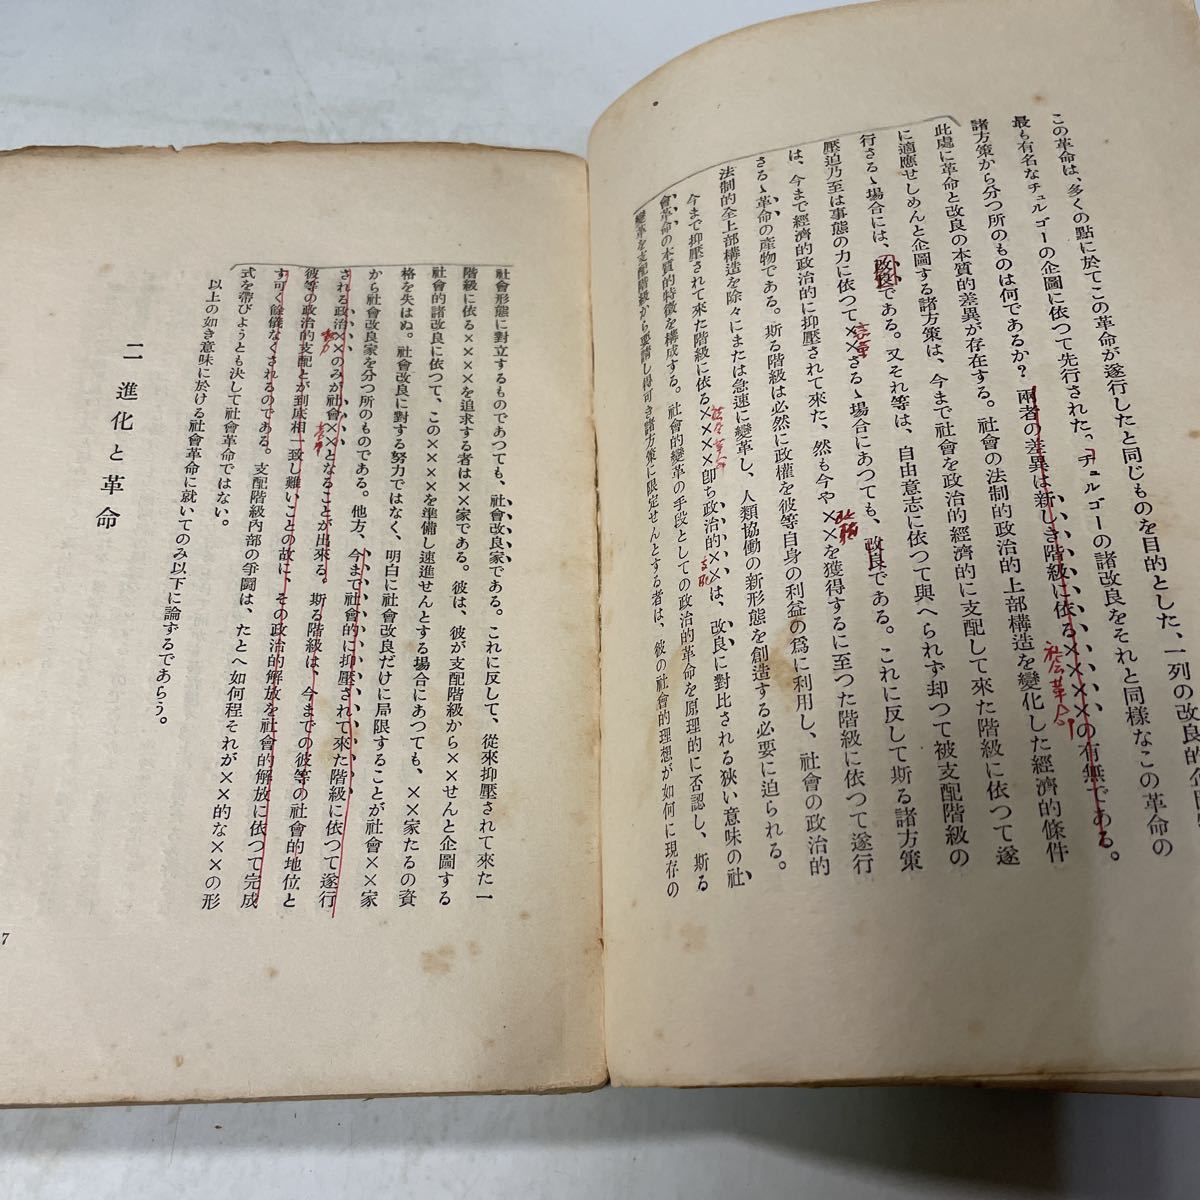 この革命は、多くの點に於てこの革命が遂行したと同じものを目的とした、一列の改良的企圖
最も有名なチュルゴーの企圖に依つて先行された。チュルゴーの諸改良をそれと同樣なこの革命の
諸方策から分つ所のものは何であるか？兩者の差異は新しき階級に依る××××の有無である。
社会革命
此處に革命と改良の本質的差異が存在する。社會の法制的政治的上部構造を變化した經濟的條件
に適應せしめんと企圖する諸方策は、今まで社會を政治的經濟的に支配して來た階級に依つて遂
行さるゝ場合には、改良である。又それ等は、自由意志に依つて與へられず却つて被支配階級の
壓迫乃至は事態の力に依つて××さるゝ場合にあつても、改良である。これに反して斯る諸方策
は、今まで經濟的政治的に抑壓されて來た、然も今や××を獲得するに至つた階級に依つて遂行
さるゝ革命の産物である。斯る階級は必然に政權を彼等自身の利益の爲に利用し、社會の政治的
法制的全上部構造を除々にまたは急速に變革し、人類協働の新形態を創造する必要に迫られる。
今まで抑壓されて來た階級に依る××××卽ち政治的××は、改良に對比される狹い意味の社
會革命の本質的特徴を構成する。社會的變革の手段としての政治的革命を原理的に否認し、斯る
變革を支配階級から要請し得可き諸方策に限定せんとする者は、彼の社會的理想が如何に現存の
社會形態に對立するものであつても、社會改良家である。これに反して、從來抑壓されて來た一
階級に依る××××を追求する者は××家である。彼は、彼が支配階級から××せんと企圖する
社會的諸改良に依つて、この××××を準備し速進せんとする場合にあつても、××家たるの資
格を失はぬ。社會改良に對する努力ではなく、明白に社會改良だけに局限することが社會××家
から社會改良家を分つ所のものである。他方、今まで社會的に抑壓されて來た階級に依つて遂行
される政治××のみが社會××となることが出來る。斯る階級は、今までの彼等の社會的地位と
彼等の政治的支配とが到底相一致し難いことの故に、その政治的解放を社會的解放に依つて完成
す可く餘儀なくされるのである。支配階級內部の爭鬪は、たとへ如何程それが××的な××の形
式を帶びようとも決して社會革命ではない。
以上の如き意味に於ける社會革命に就いてのみ以下に論ずるであらう。
二 進化と革命
7